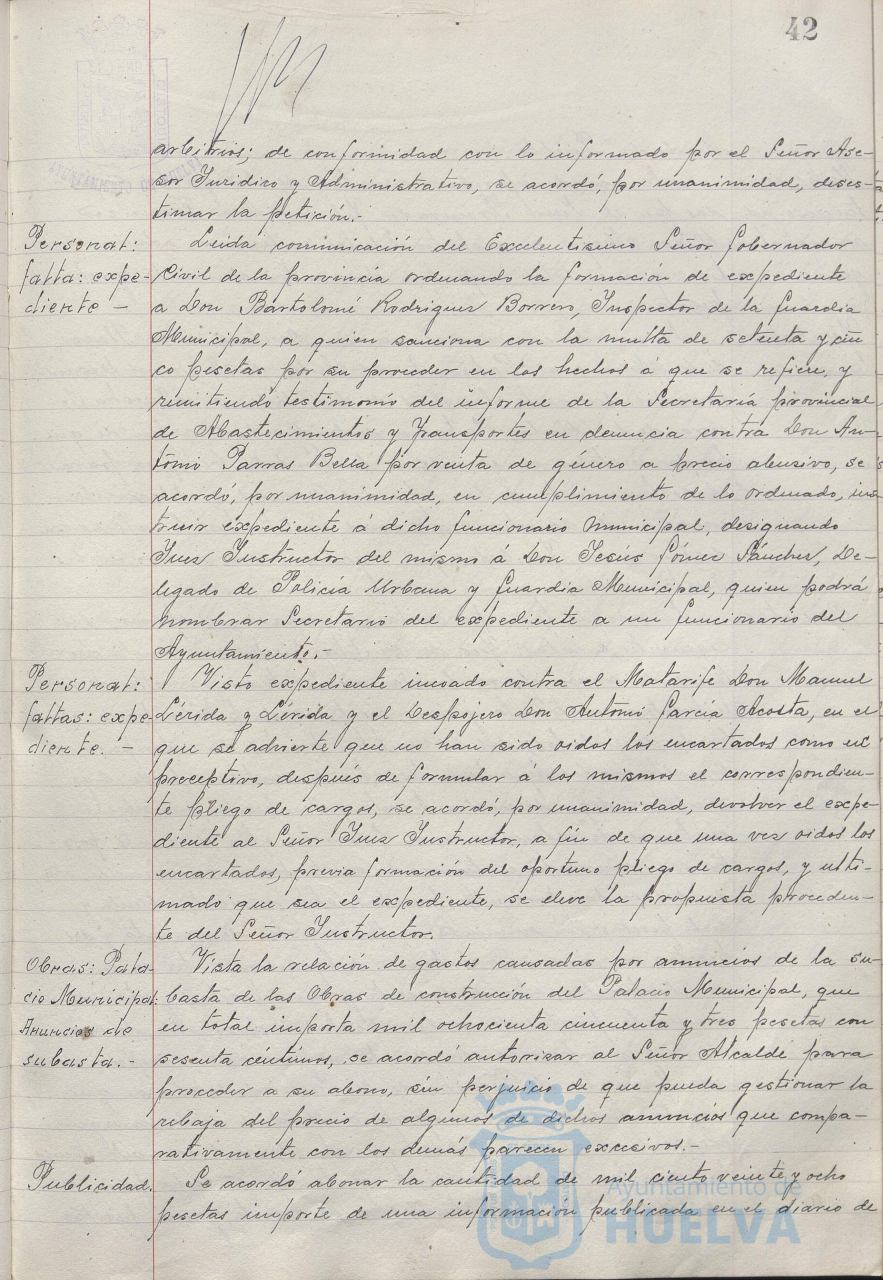 42
arbitrios; de conformidad con lo informado por el Señor Ase-
sor Jurídico y Administrativo, se acordó, por unanimidad, deses-
timar la petición.-
Personal:
falta: expe-
diente -
Leida comunicación del Excelentísimo Señor Gobernador
Civil de la provincia ordenando la formación de expediente
a Don Bartolomé Rodriguez Borrero, Inspector de la Guardia
Municipal, a quien sanciona con la multa de setenta y cin
co pesetas por su proceder en los hechos á que se refiere, y
remitiendo testimonio del informe de la Secretaría provincial
de Abastecimientos y Transportes en denuncia contra Don An-
tonio Parras Bella por venta de género a precio abusivo, se
acordó, por unanimidad, en cumplimiento de lo ordenado, ins
truir expediente á dicho funcionario municipal, designando
Juez Instructor del mismo á Don Jesús Gómez Sánchez, De-
legado de Policía Urbana y Guardia Municipal, quien podrá
nombrar Secretario del expediente a un funcionario del
Ayuntamiento.-
Personal:
faltas: expe-
diente. -
Visto expediente incoado contra el Matarife Don Manuel
Lérida y Lérida y el Despojero Don Antonio García Acosta, en el
que se advierte que no han sido oidos los encartados como es
preceptivo, después de formular á los mismos el correspondien-
te pliego de cargos, se acordó, por unanimidad, devolver el expe-
diente al Señor Juez Instructor, a fin de que una vez oidos los
encartados, previa formación del oportuno pliego de cargos, y ulti-
mado que sea el expediente, se eleve la propuesta proceden-
te del Señor Instructor.
Obras: Pala-
cio Municipal:
Anuncios de
subasta.-
Vista la relación de gastos causadas por anuncios de la su-
basta de las Obras de construcción del Palacio Municipal, que
en total importa mil ochocienta cincuenta y tres pesetas con
sesenta céntimos, se acordó autorizar al Señor Alcalde para
proceder a su abono, sin perjuicio de que pueda gestionar la
rebaja del precio de algunos de dichos anuncios que compa-
rativamente con los demás parecen excesivos.-
Publicidad.
Se acordó abonar la cantidad de mil ciento veinte y ocho
pesetas importe de una información publicada en el diario de
Ayuntamiento de
HUELVA